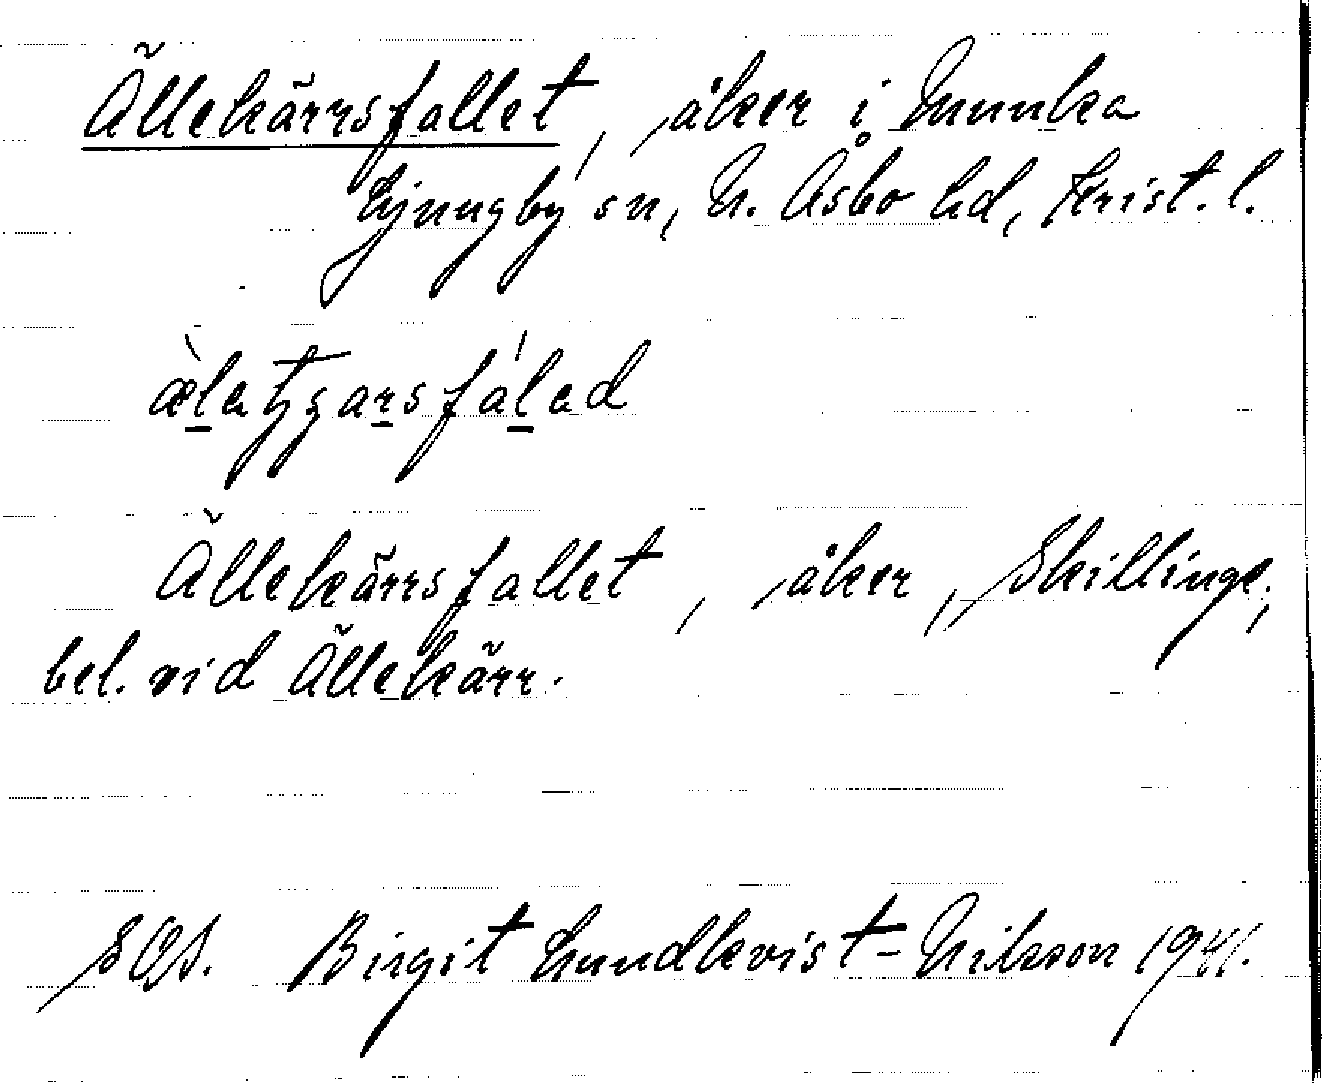 Ällekärrsfallet, åker i Munka
Ljungby sn, N. Åsbo hd, Krist. l.
Ällekärrsfallet, åker, Skillinge,
bel. vid Ällekärr.
Birgit Lundkvist-Nilsson 1941.